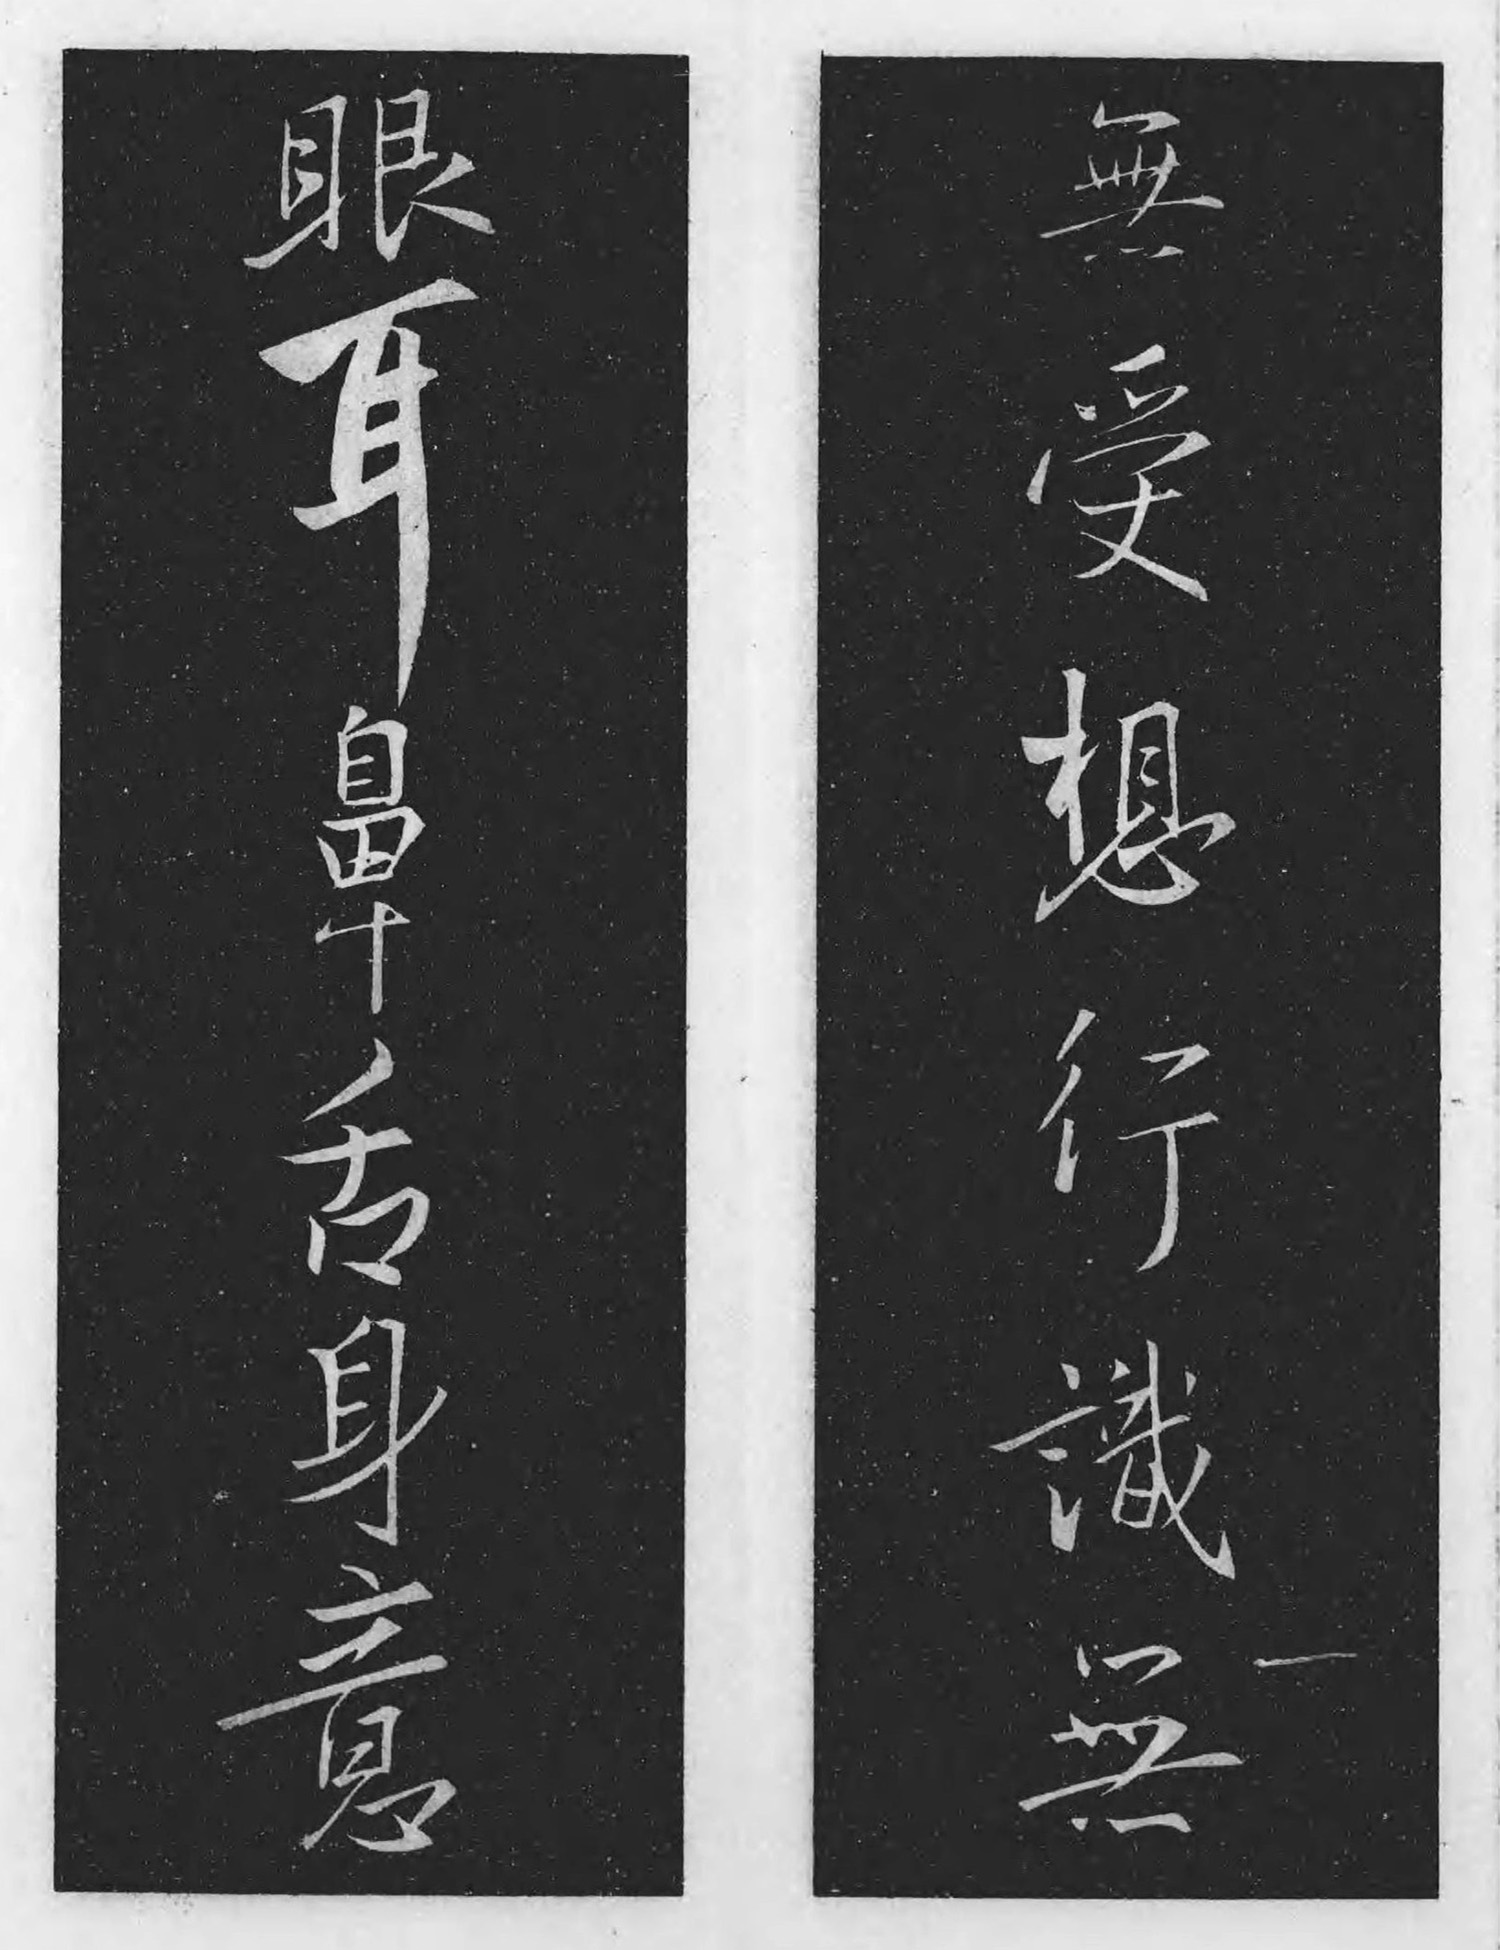 無受想行識無
眼耳鼻舌身意